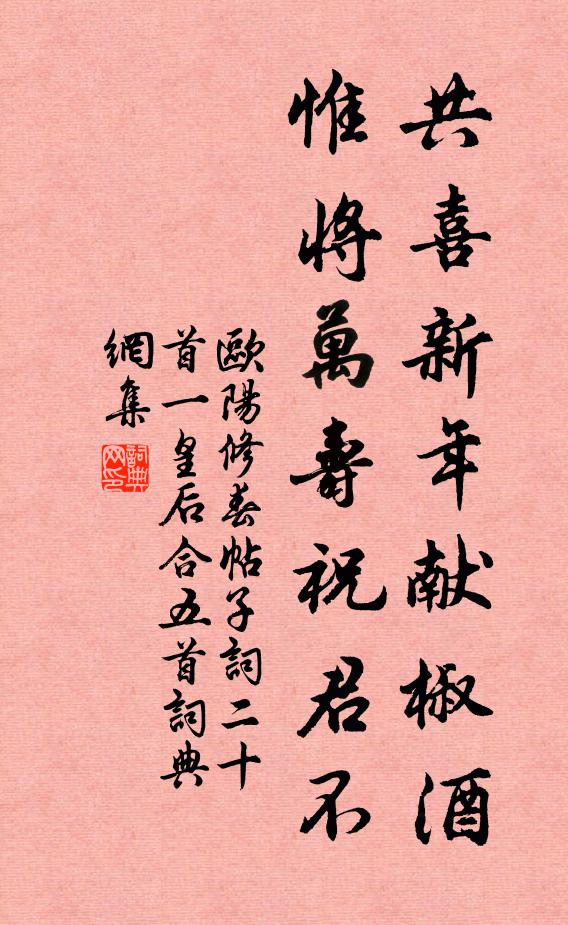 共喜新年献椒酒
惟將萬壽祝君不
歐陽修春帖子詞二十
首一皇后合五首詞典
網集
詞典
网印